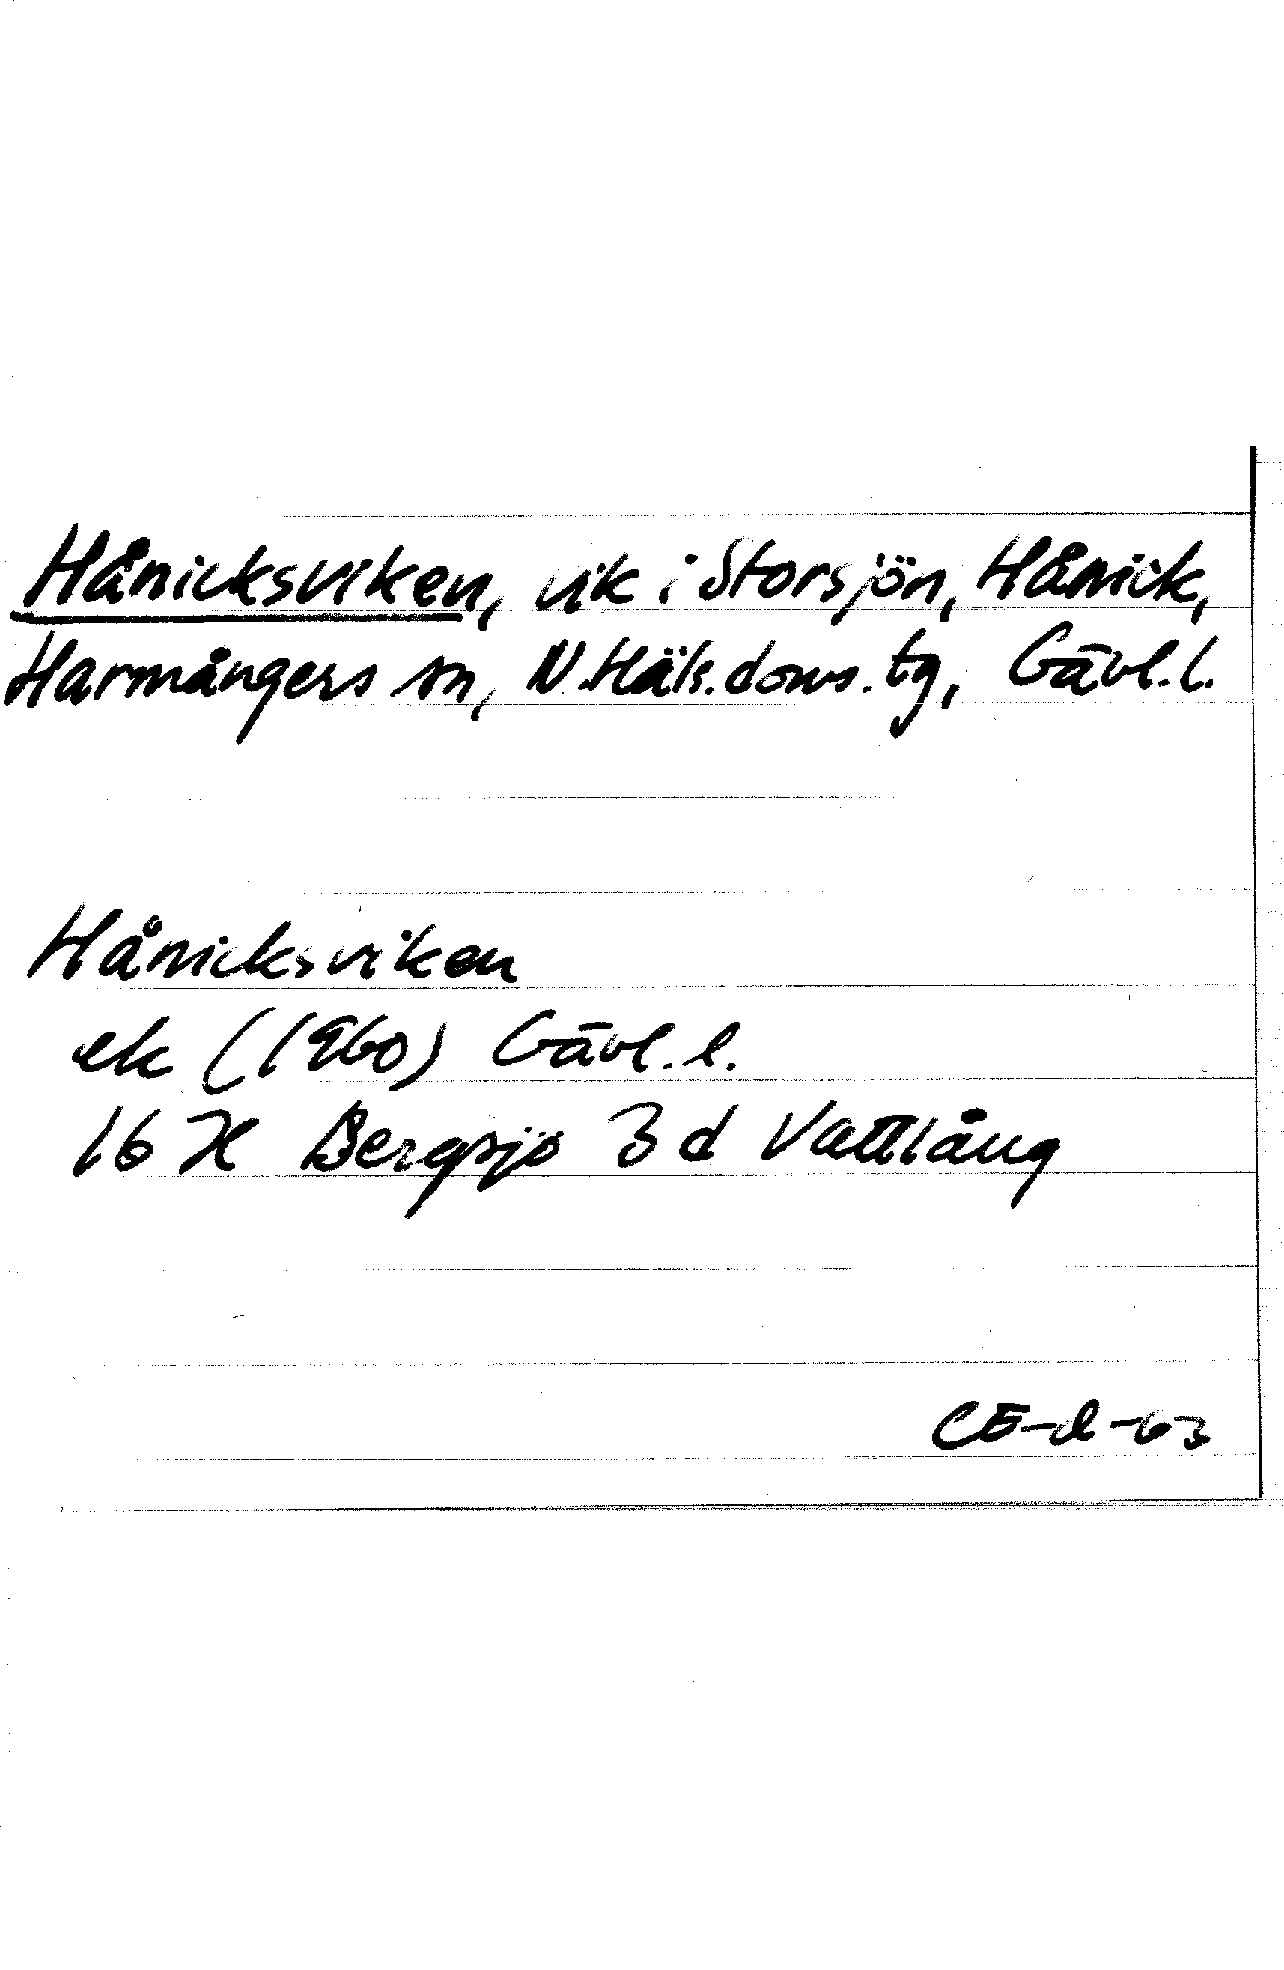 Hånicksviken, vik i Storsjön, Hånick,
Harmångers sn, N.Häls.doms.tg, Gävl.l.
Hånicksviken
ek (1960) Gävl.l.
16 H Bergsjö 3 d Vattlång
CE-d-63